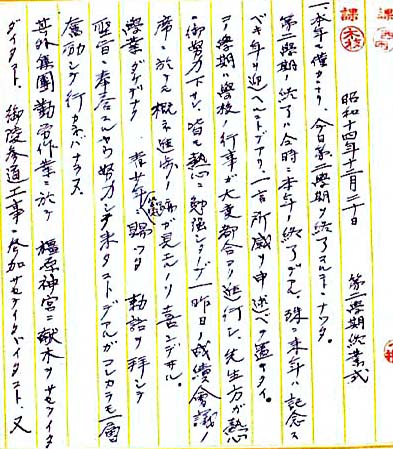 昭和十四年十二月二十日
第二學期終業式
一、本年モ僅カトナリ、今日第二學期ヲ終了スルコトトナッタ。
第二學期ノ終了ハ今時ニ本年ノ終了デアル、殊ニ來年ハ記念ス
ベキ年ヲ迎ヘルコトデアリ、一言所感ヲ申述ベテ置キタイ。
二學期ハ學校ノ行事ガ大変都合ヨク進行シ、先生方ガ熱心
ニ御努力下サレ、皆モ熱心ニ勉強シタノデ一昨日ノ成績會議ノ
席ニ於テモ概ネ進歩ノ跡ガ見エルノヲ喜ンデヰル。
學業ダケデナク 青少年學徒ニ賜ハリタル 勅語ヲ拝シテ
聖旨ニ奉答スルヤウ努力シテ來タコトデアルガコレカラモ一層
奮励シテ行カネバナラヌ。
其外集團勤労作業ニ於テ 橿原神宮ニ獻木ヲサセテイタ
ダイタコト、御陵参道工事ニ参加サセテイタダイタコト、又